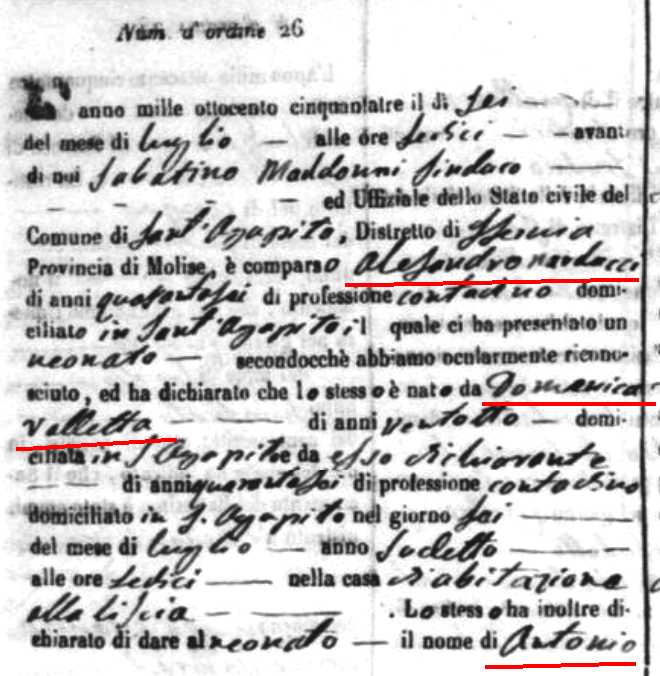 Num. d'ordine 26
L'anno mille ottocento cinquantatre il di sei
del mese di luglio — alle ore sedici — avanti
di noi Sabatino Maddonni Sindaco
ed Uffiziale dello Stato civile del
Comune di Sant'Agapito, Distretto di Isernia
Provincia di Molise, è comparso Alesandro narducci
di anni quarantasei di professione contadino domi-
ciliato in Sant'Agapito il quale ci ha presentato un
neonato — secondocchè abbiamo ocularmente ricono-
sciuto, ed ha dichiarato che lo stesso è nato da Domenica
Valletta di anni ventotto — domi-
ciliata in S. Agapito e da esso dichiarante
di anni quarantasei di professione contadino
domiciliato in S. Agapito nel giorno sei
del mese di luglio — anno sudetto
alle ore sedici — nella casa d'abitazione
alla — . Lo stesso ha inoltre di-
chiarato di dare al neonato — il nome di Antonio